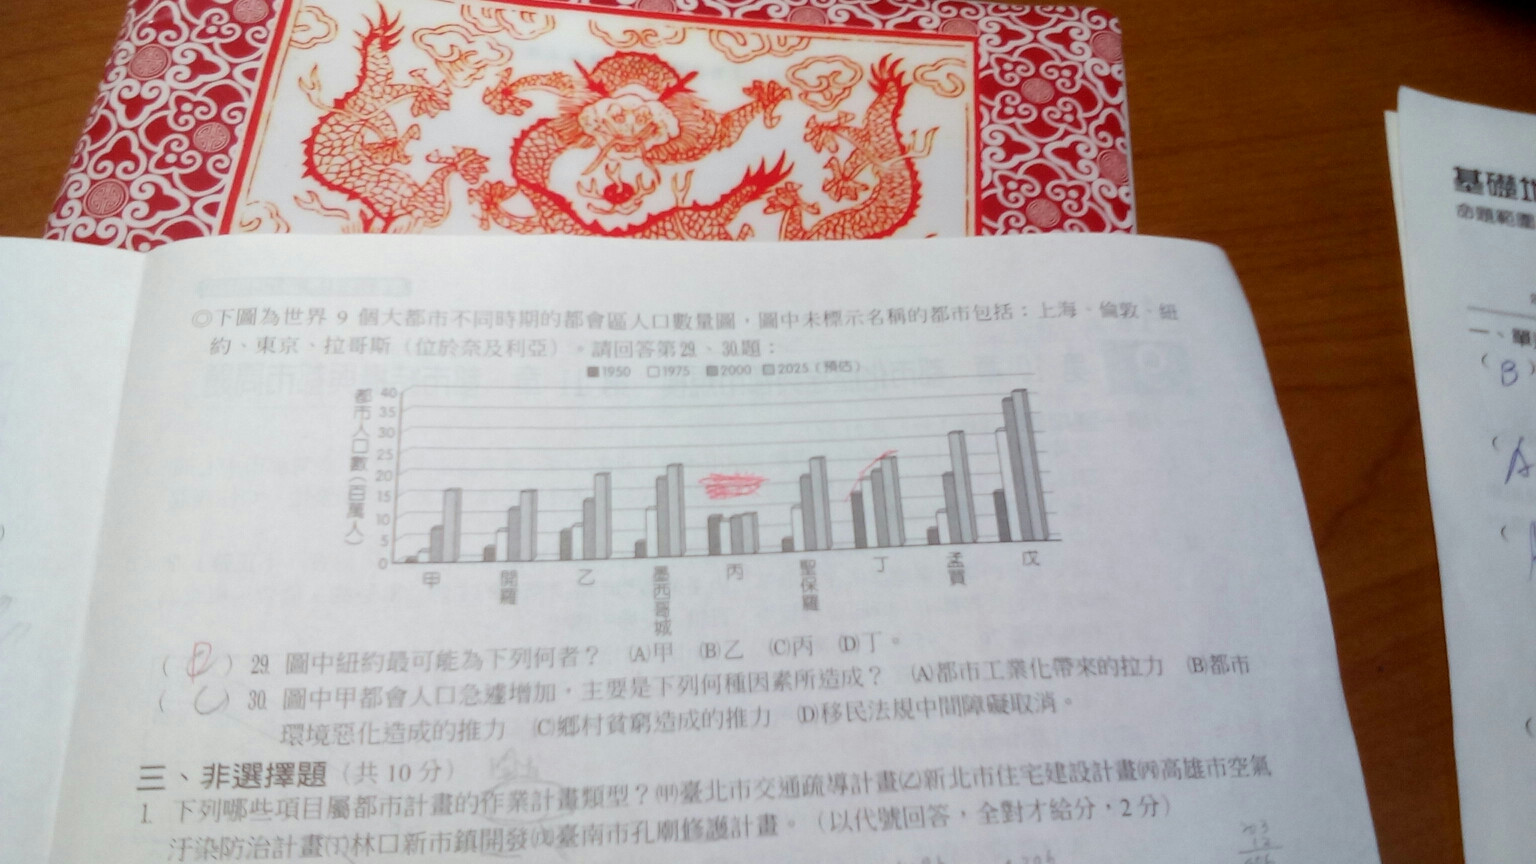 ◎下圖為世界 9 個大都市不同時期的都會區人口數量圖，圖中未標示名稱的都市包括：上海、倫敦、紐
約、東京、拉哥斯（位於奈及利亞）。請回答第29、30題：
■1950 □1975 ■2000 □2025（預估）
都市人口數（百萬人）
40
35
30
25
20
15
10
5
0
甲 開羅 乙 墨西哥城 丙 聖保羅 丁 孟買 戊
（ D ）29. 圖中紐約最可能為下列何者？ (A)甲 (B)乙 (C)丙 (D)丁。
（ C ）30. 圖中甲都會人口急遽增加，主要是下列何種因素所造成？ (A)都市工業化帶來的拉力 (B)都市
環境惡化造成的推力 (C)鄉村貧窮造成的推力 (D)移民法規中間障礙取消。
三、非選擇題（共 10 分）
1. 下列哪些項目屬都市計畫的作業計畫類型？(甲)臺北市交通疏導計畫(乙)新北市住宅建設計畫(丙)高雄市空氣
汙染防治計畫(丁)林口新市鎮開發(戊)臺南市孔廟修護計畫。（以代號回答，全對才給分，2 分）
基礎
命題範圍
一、單
（ B ）
（ A
（
（